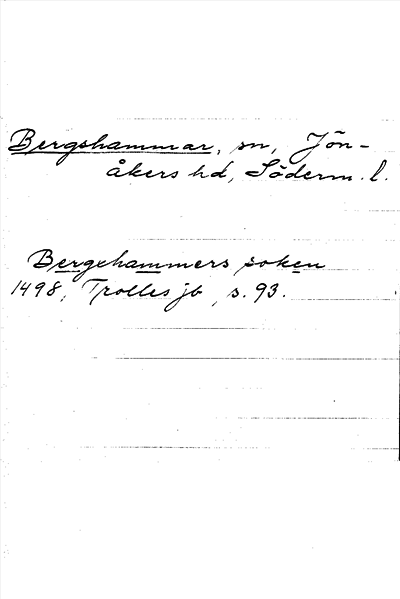 Bergshammar, sn, Jön-
åkers hd, Söderm. l.
Bergxhammers soken
1498, Trolles jb, s. 93.